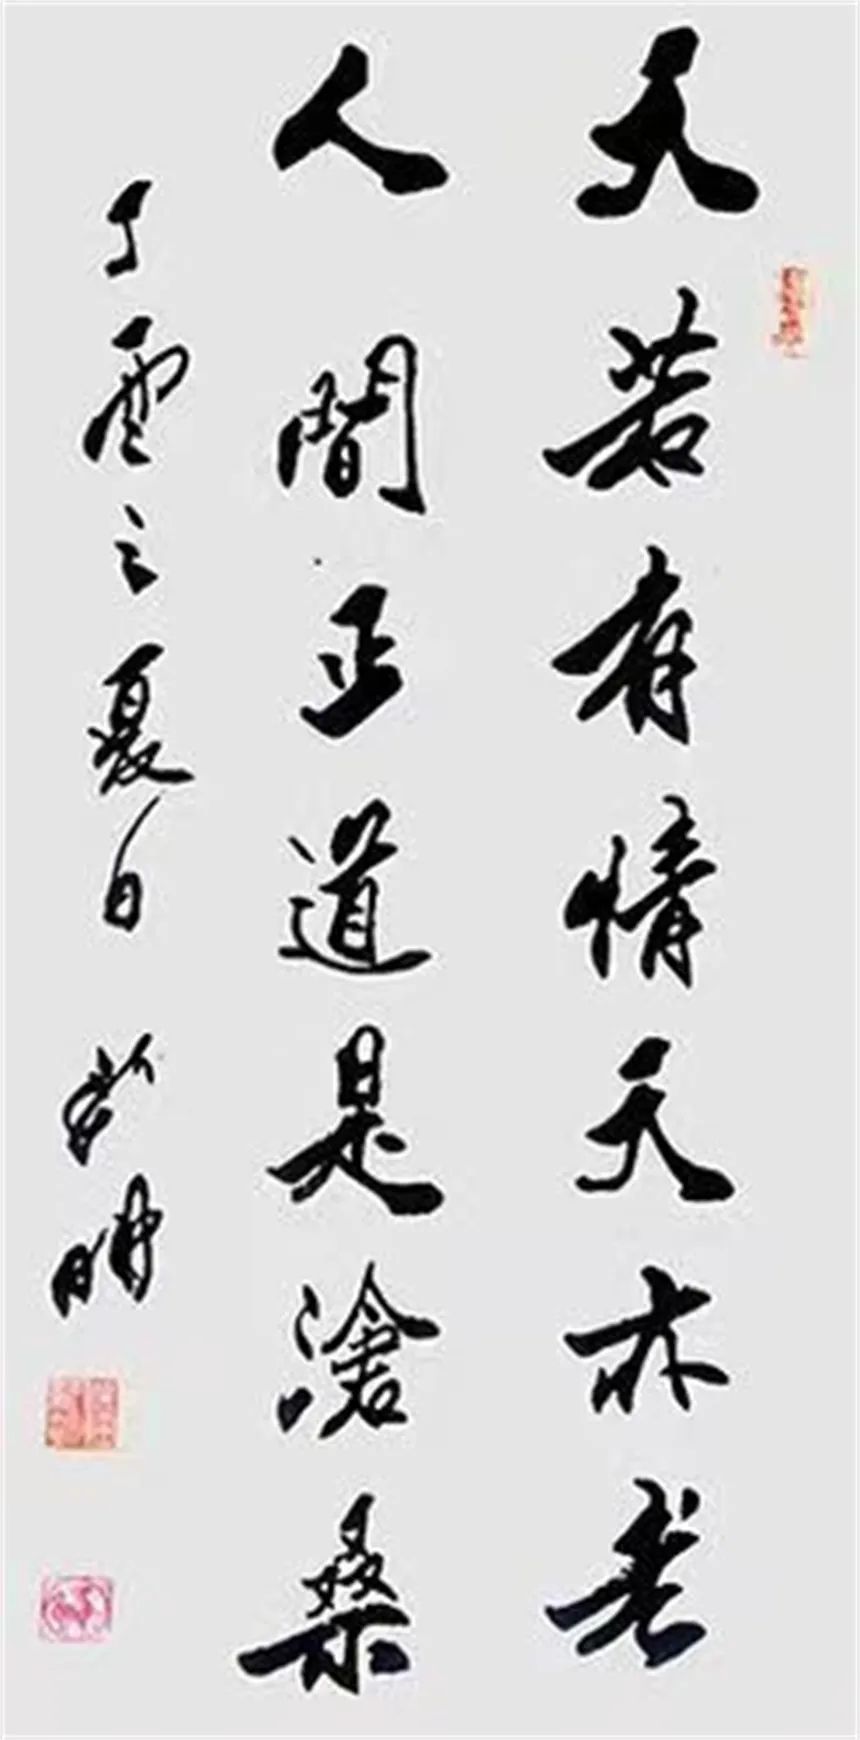 天若有情天亦老
人間正道是滄桑
丁雲之夏日